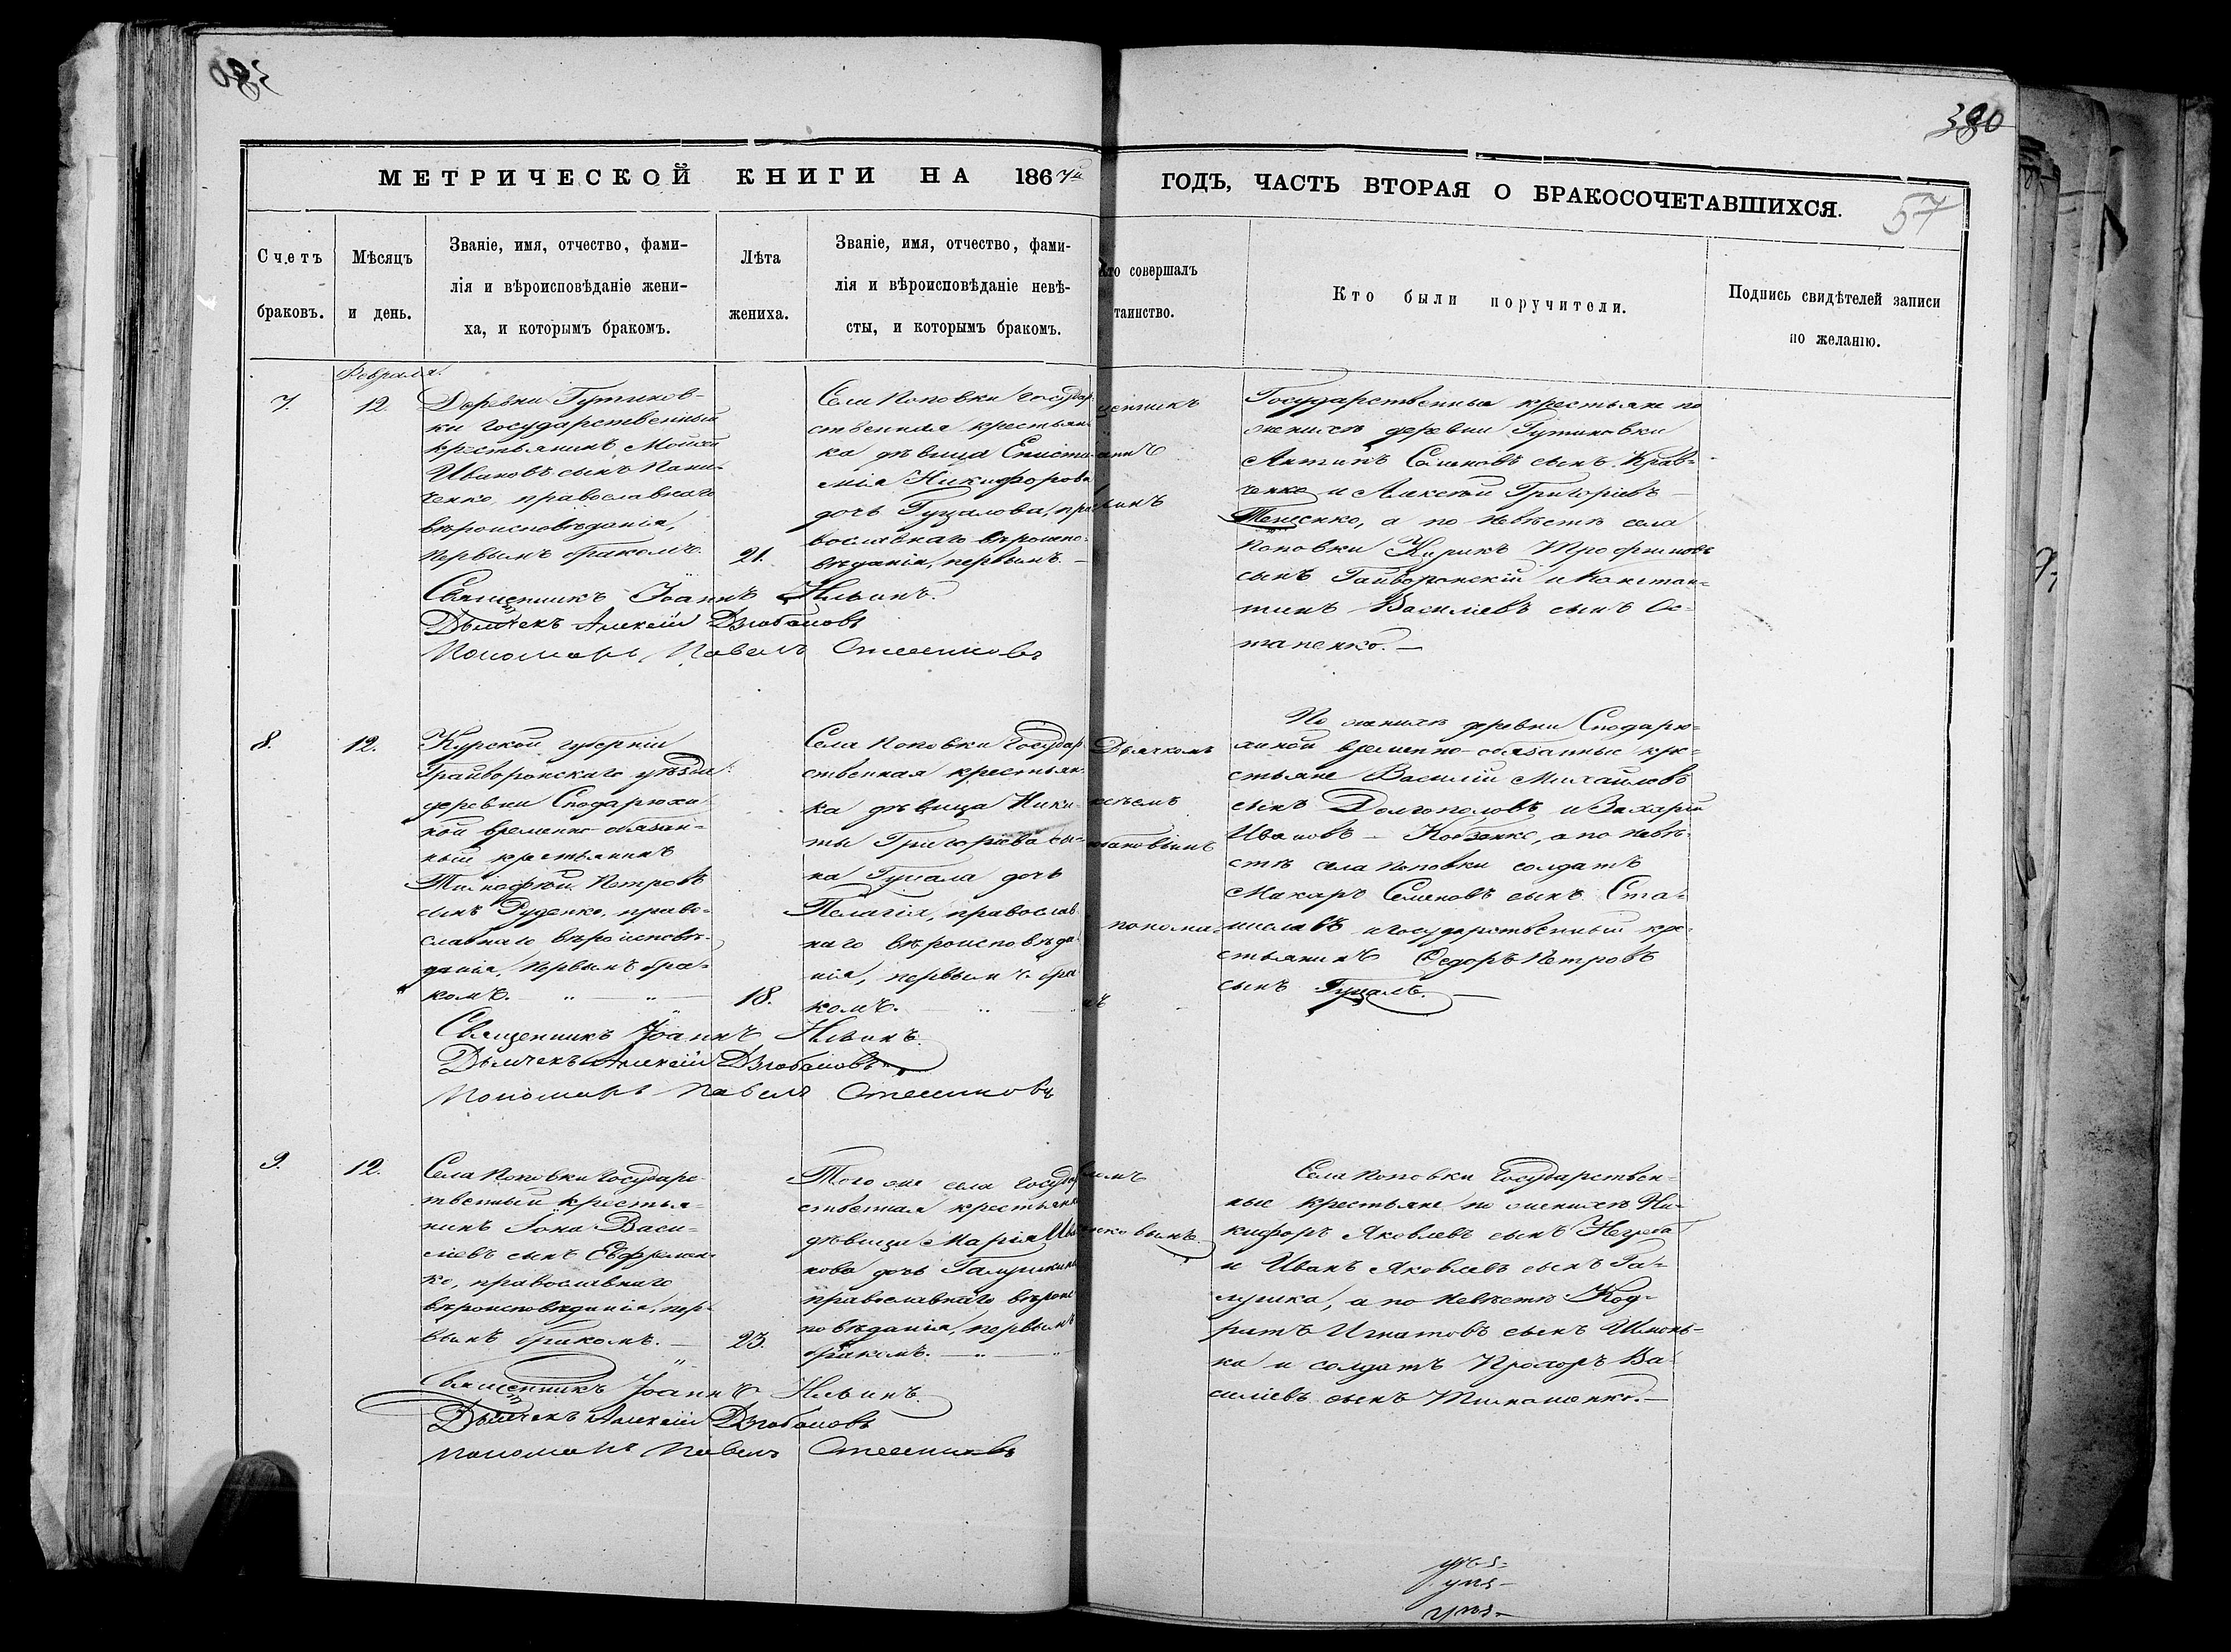 380
МЕТРИЧЕСКОЙ КНИГИ НА 1867й ГОДЪ, ЧАСТЬ ВТОРАЯ О БРАКОСОЧЕТАВШИХСЯ.
57
Счетъ
браковъ.
Мѣсяцъ
и день.
Званіе, имя, отчество, фами-
лія и вѣроисповѣданіе жени-
ха, и которымъ бракомъ.
Лѣта
жениха.
Званіе, имя, отчество, фами-
лія и вѣроисповѣданіе невѣ-
сты, и которымъ бракомъ.
то совершалъ
таинство.
Кто были поручители.
Подпись свидѣтелей записи
по желанію.
Февраля.
7.
12.
Деревни Гутиков-
ки государственный
крестьянинъ Мойсей
Ивановъ сынъ Пани-
ченко, православнаго
вѣроисповѣданія,
первымъ бракомъ.
21.
Села Поповки государ-
ственная крестьян-
ка дѣвица
Никифорова
дочь Гуцалова, пра-
вославнаго вѣроиспо-
вѣданія, первымъ. —
щенникъ
аннъ
Государственные крестьяне по
женихѣ деревни Гутиковки
Антипъ Семеновъ сынъ Крав-
ченко и Алексѣй Григоріевъ —
а по невѣстѣ села
Поповки Кирикъ Трофимовъ
сынъ Гайворонскій и Констан-
тинъ Василіевъ сынъ Ос-
тапенко. —
Священникъ Іоаннъ Ильинъ.
Дьячекъ Алексій Дзюбановъ
Пономарь Павелъ
8.
12.
Курской губерніи
Грайворонскаго уѣзда
деревни Сподарюхи-
ной временно-обязан-
ный крестьянинъ
Тимофей Петровъ
сынъ Руденко, право-
славнаго вѣроисповѣ-
данія, первымъ бра-
комъ.
18.
Села Поповки государ-
ственная крестьян-
ка дѣвица Ники-
ты Григоріева сы-
на Гуцала дочь
Пелагія, православ-
наго вѣроисповѣда-
нія, первымъ бра-
комъ.
Дьячкомъ
ксѣемъ
бановымъ
понома-
По женихѣ деревни Сподарю-
хиной временно-обязанные кре-
стьяне Василій Михайловъ
сынъ Долгополовъ и Захарій
Ивановъ — Кобзенко, а по невѣ-
стѣ села Поповки солдатъ
Макаръ Семеновъ сынъ Ста-
ниславъ и государственный кре-
стьянинъ Федоръ Петровъ
сынъ Гуцалъ. —
Священникъ Іоаннъ Ильинъ.
Дьячекъ Алексій Дзюбановъ
Пономарь Павелъ
9.
12.
Села Поповки государс-
твенный крестья-
нинъ Іона Васи-
ліевъ сынъ Ефремен-
ко, православнаго
вѣроисповѣданія, пер-
вымъ бракомъ. —
23.
Того же села государ-
ственная крестьянка
дѣвица Марія Ива-
нова дочь Галушкина
православнаго вѣроис-
повѣданія, первымъ
бракомъ.
Села Поповки государствен-
ные крестьяне, по женихѣ Ни-
кифоръ Яковлевъ сынъ Негреба
и Иванъ Яковлевъ сынъ Га-
лушка, а по невѣстѣ Код-
ратъ Игнатовъ сынъ Шмонь-
ка и солдатъ Прохоръ Ва-
силіевъ сынъ Тимошенко. —
Священникъ Іоаннъ Ильинъ.
Дьячекъ Алексій Дзюбановъ
Пономарь Павелъ